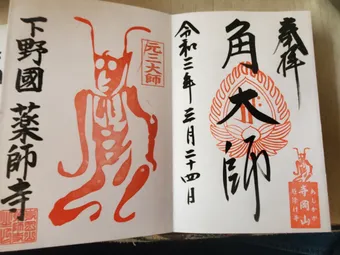 奉拝
角大師
令和三年三月二十四日
寺岡山
元三大師
下野國 薬師寺